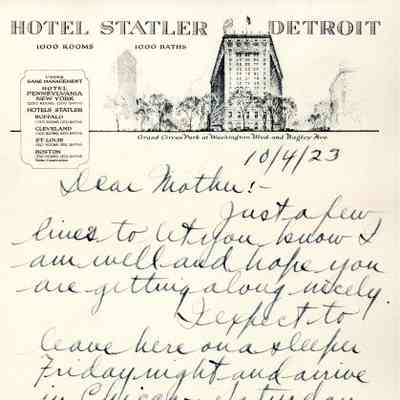 HOTEL STATLER DETROIT
1000 ROOMS 1000 BATHS
UNDER
SAME MANAGEMENT
HOTEL
PENNSYLVANIA
NEW YORK
HOTELS STATLER
BUFFALO
CLEVELAND
ST. LOUIS
BOSTON
Grand Circus Park at Washington Blvd. and Bagley Ave.
10/4/23
Dear Mother:-
Just a few
lines to let you know I
am well and hope you
are getting along nicely.
I expect to
leave here on a sleeper
Friday night and arrive
in Chicago Saturday